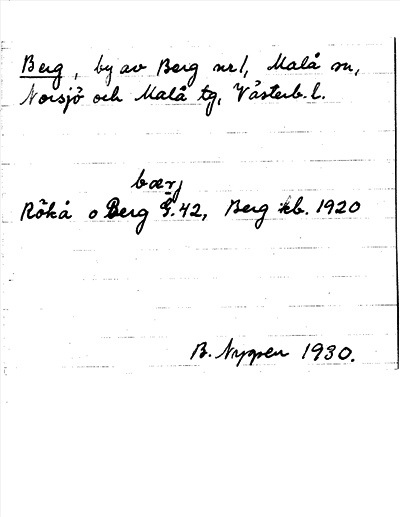 Berg, by av Berg nr 1, Malå sn,
Norsjö och Malå tg, Västerb. l.
bærj
Rökå o Berg G. 42, Berg kb. 1920
B. Nyman 1930.